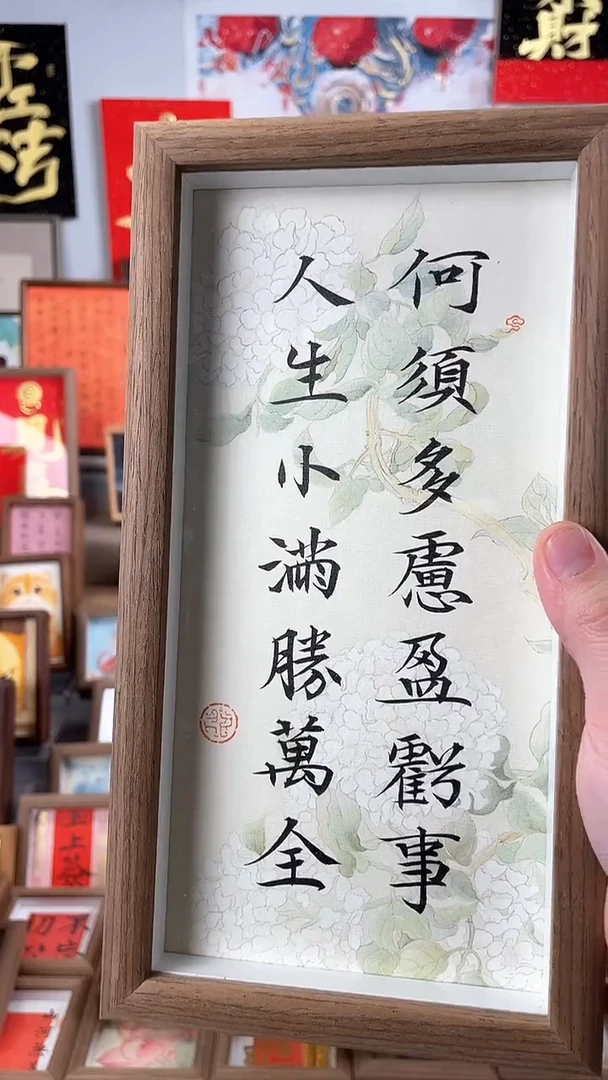 何須多慮盈虧事
人生小滿勝萬全
財